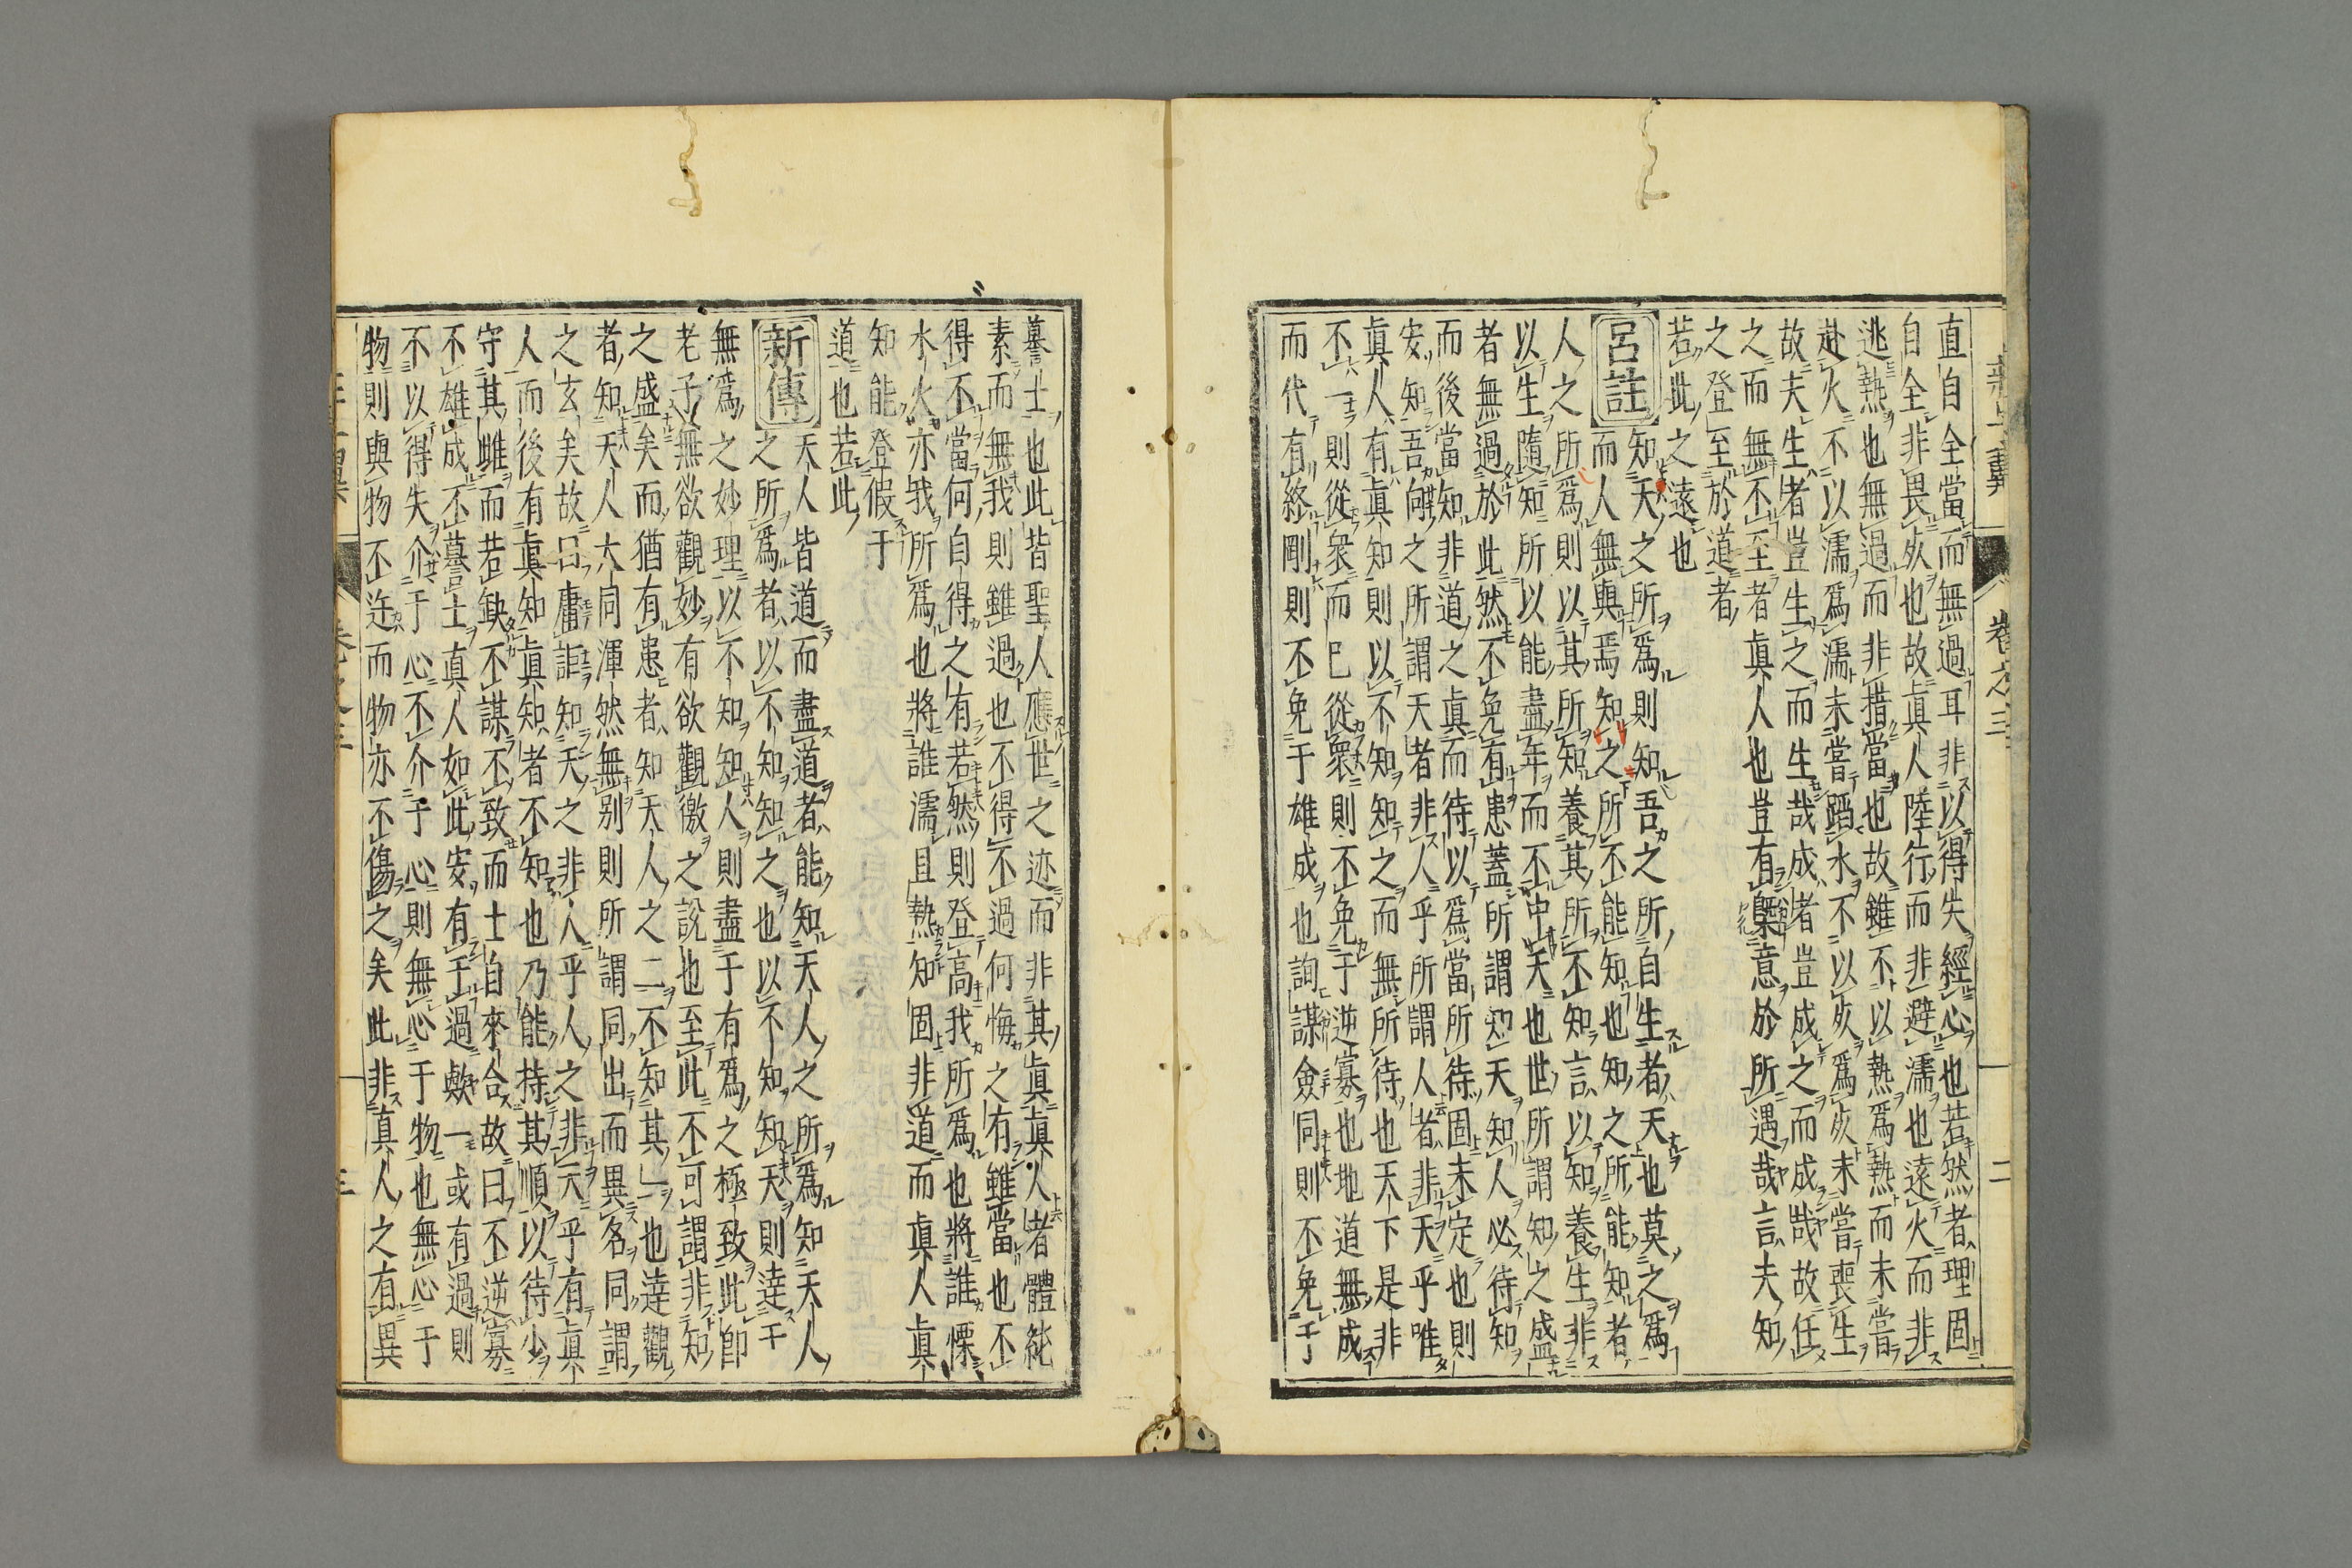 直自全當而無過耳非以得失經心也若然者理固
自全非畏死也故眞人陸行而非避濡也遠火而非
逃熱也無過而非措當也故雖不以熱爲熱而未嘗
赴火不以濡爲濡未嘗蹈水不以死爲死未嘗喪生
故夫生者豈生之而生哉成者豈成之而成哉故任
之而無不至者眞人也豈有槩意於所遇哉言夫知
之登至於道者
若此之遠也
呂註
知天之所爲則知吾之所自生者天也莫之爲
而人無與焉知之所不能知也知之所能知者
人之所爲則以其所知養其所不知言以知養生非
以生隨知所以能盡年而不中夭也世所謂知之盛
者無過於此然不免有患蓋所謂知天知人必待知
而後當知非道之眞而待以爲當所待固未定也則
安知吾向之所謂天者非人乎所謂人者非天乎唯
眞人有眞知則以不知知之而無所待也天下是非
不一則從衆而已從衆則不免于逆寡也地道無成
而代有終剛則不免于雄成也詢謀僉同則不免于
卷之三
二
謩士也此皆聖人應世之迹而非其眞眞人者體純
素而無我則雖過也不得不過何悔之有雖當也不
得不當何自得之有若然則登高我所爲也將誰慄
水火亦我所爲也將誰濡且熱知固非道而眞人眞
知能登假于
道也若此
新傳
天人皆道而盡道者能知天人之所爲知天人
之所爲者以不知知之也以不知知天則達于
無爲之妙理以不知知人則盡于有爲之極致此卽
老子無欲觀妙有欲觀徼之說也至此不可謂非知
之盛矣而猶有患者知天人之二不知其一也達觀
者知天人大同渾然無別則所謂同出而異名同謂
之玄矣故曰庸詎知天之非人乎人之非天乎有眞
人而後有眞知眞知者不知也乃能持其順以待少
守其雌而若缺不謀不致而士自來合故曰不逆寡
不雄成不謩士眞人如此安有于過歟一或有過則
不以得失介于心不介于心則無心于物也無心于
物則與物不迕而物亦不傷之矣此非眞人之有異